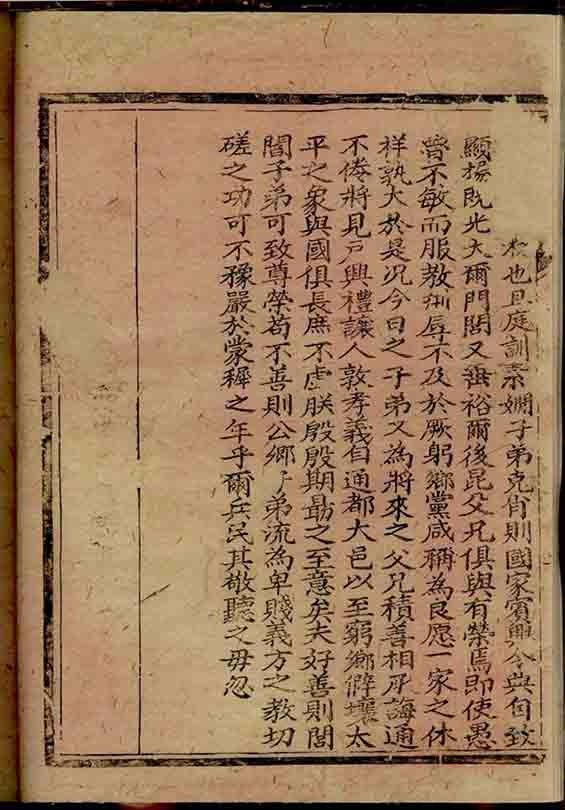 也且庭訓素嫻子弟克肖則國家賓興令典自致
顯揚既光大爾門閭又垂裕爾後昆父兄俱與有榮焉即使愚
魯不敏而服教刑辱不及於厥躬鄉黨咸稱為良愿一家之休
祥孰大於是况今日之子弟又為將來之父兄積善相承誨通
不倦將見戶興禮讓人敦孝義自通都大邑以至窮鄉僻壤太
平之象與國俱長庶不虛朕殷殷期勗之至意矣夫好善則閭
閻子弟可致尊榮苟不善則公卿子弟流為卑賤義方之教切
磋之功可不豫嚴於蒙穉之年乎爾兵民其敬聽之毋忽